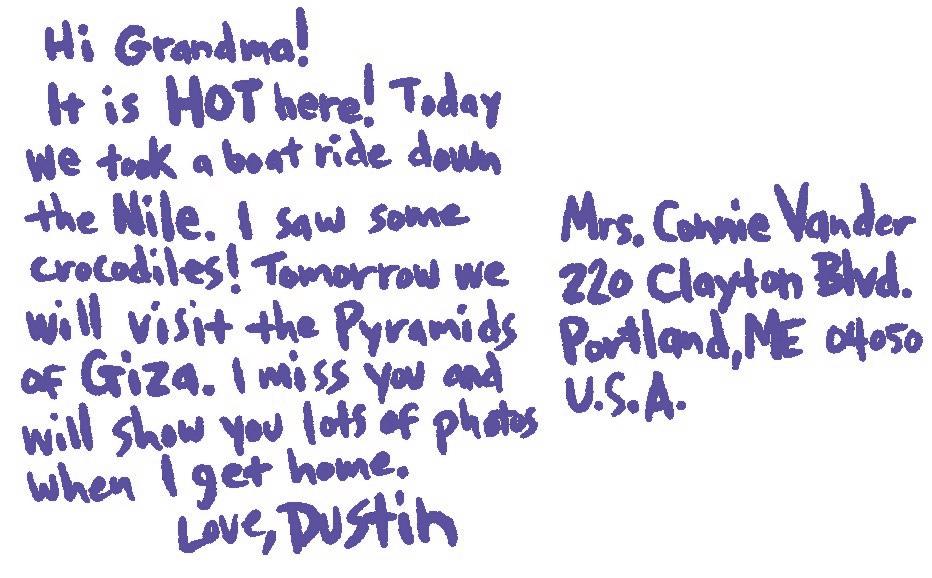 Hi Grandma!
It is HOT here! Today
we took a boat ride down
the Nile. I saw some
crocodiles! Tomorrow we
will visit the Pyramids
of Giza. I miss you and
will show you lots of photos
when I get home.
Love, Dustin
Mrs. Connie Vander
220 Clayton Blvd.
Portland, ME 04050
U.S.A.